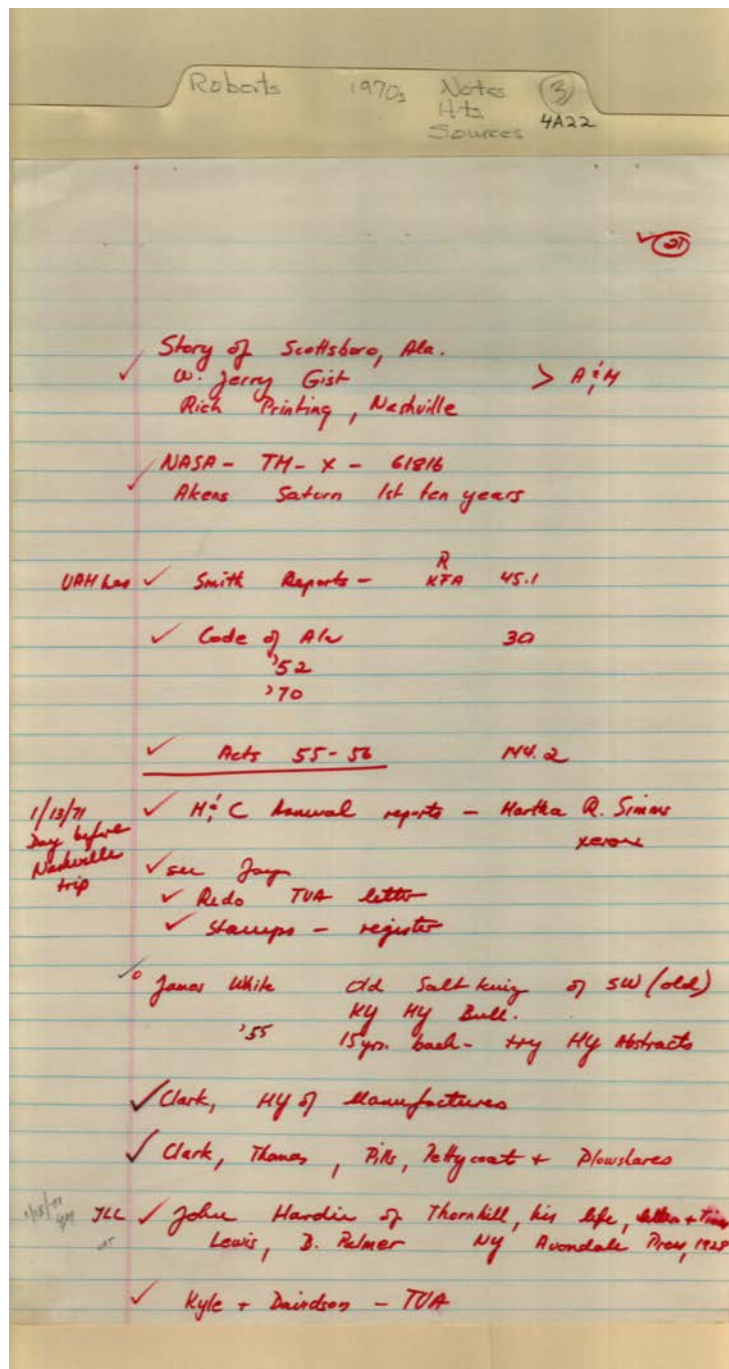 Roberts 1970s Notes ③
Hts
Sources 4A22
✓ 21
Story of Scottsboro, Ala.
✓ W. Jerry Gist > A & H
Rich Printing, Nashville
NASA - TM - X - 61816
✓ Akens Saturn 1st ten years
R
UAH has ✓ Smith Reports - KFA 45.1
✓ Code of Ala 30
'52
'70
✓ Acts 55-56 144.2
1/13/71 ✓ H & C Annual reports - Martha R. Simms
Day before xerox
Nashville ✓ see Jay
trip ✓ Redo TVA letter
✓ Stamps - register
✓ James White Old Salt King of SW (old)
KY HY Bull.
'55 15 yrs. back - try HY Abstracts
✓ Clark, HY of Manufactures
✓ Clark, Thomas, Pills, Pettycoat + Plowshares
JLC ✓ John Hardie of Thornhill, his life, letters + Times
Lewis, B. Palmer NY Avondale Press, 1928
✓ Kyle + Davidson - TVA